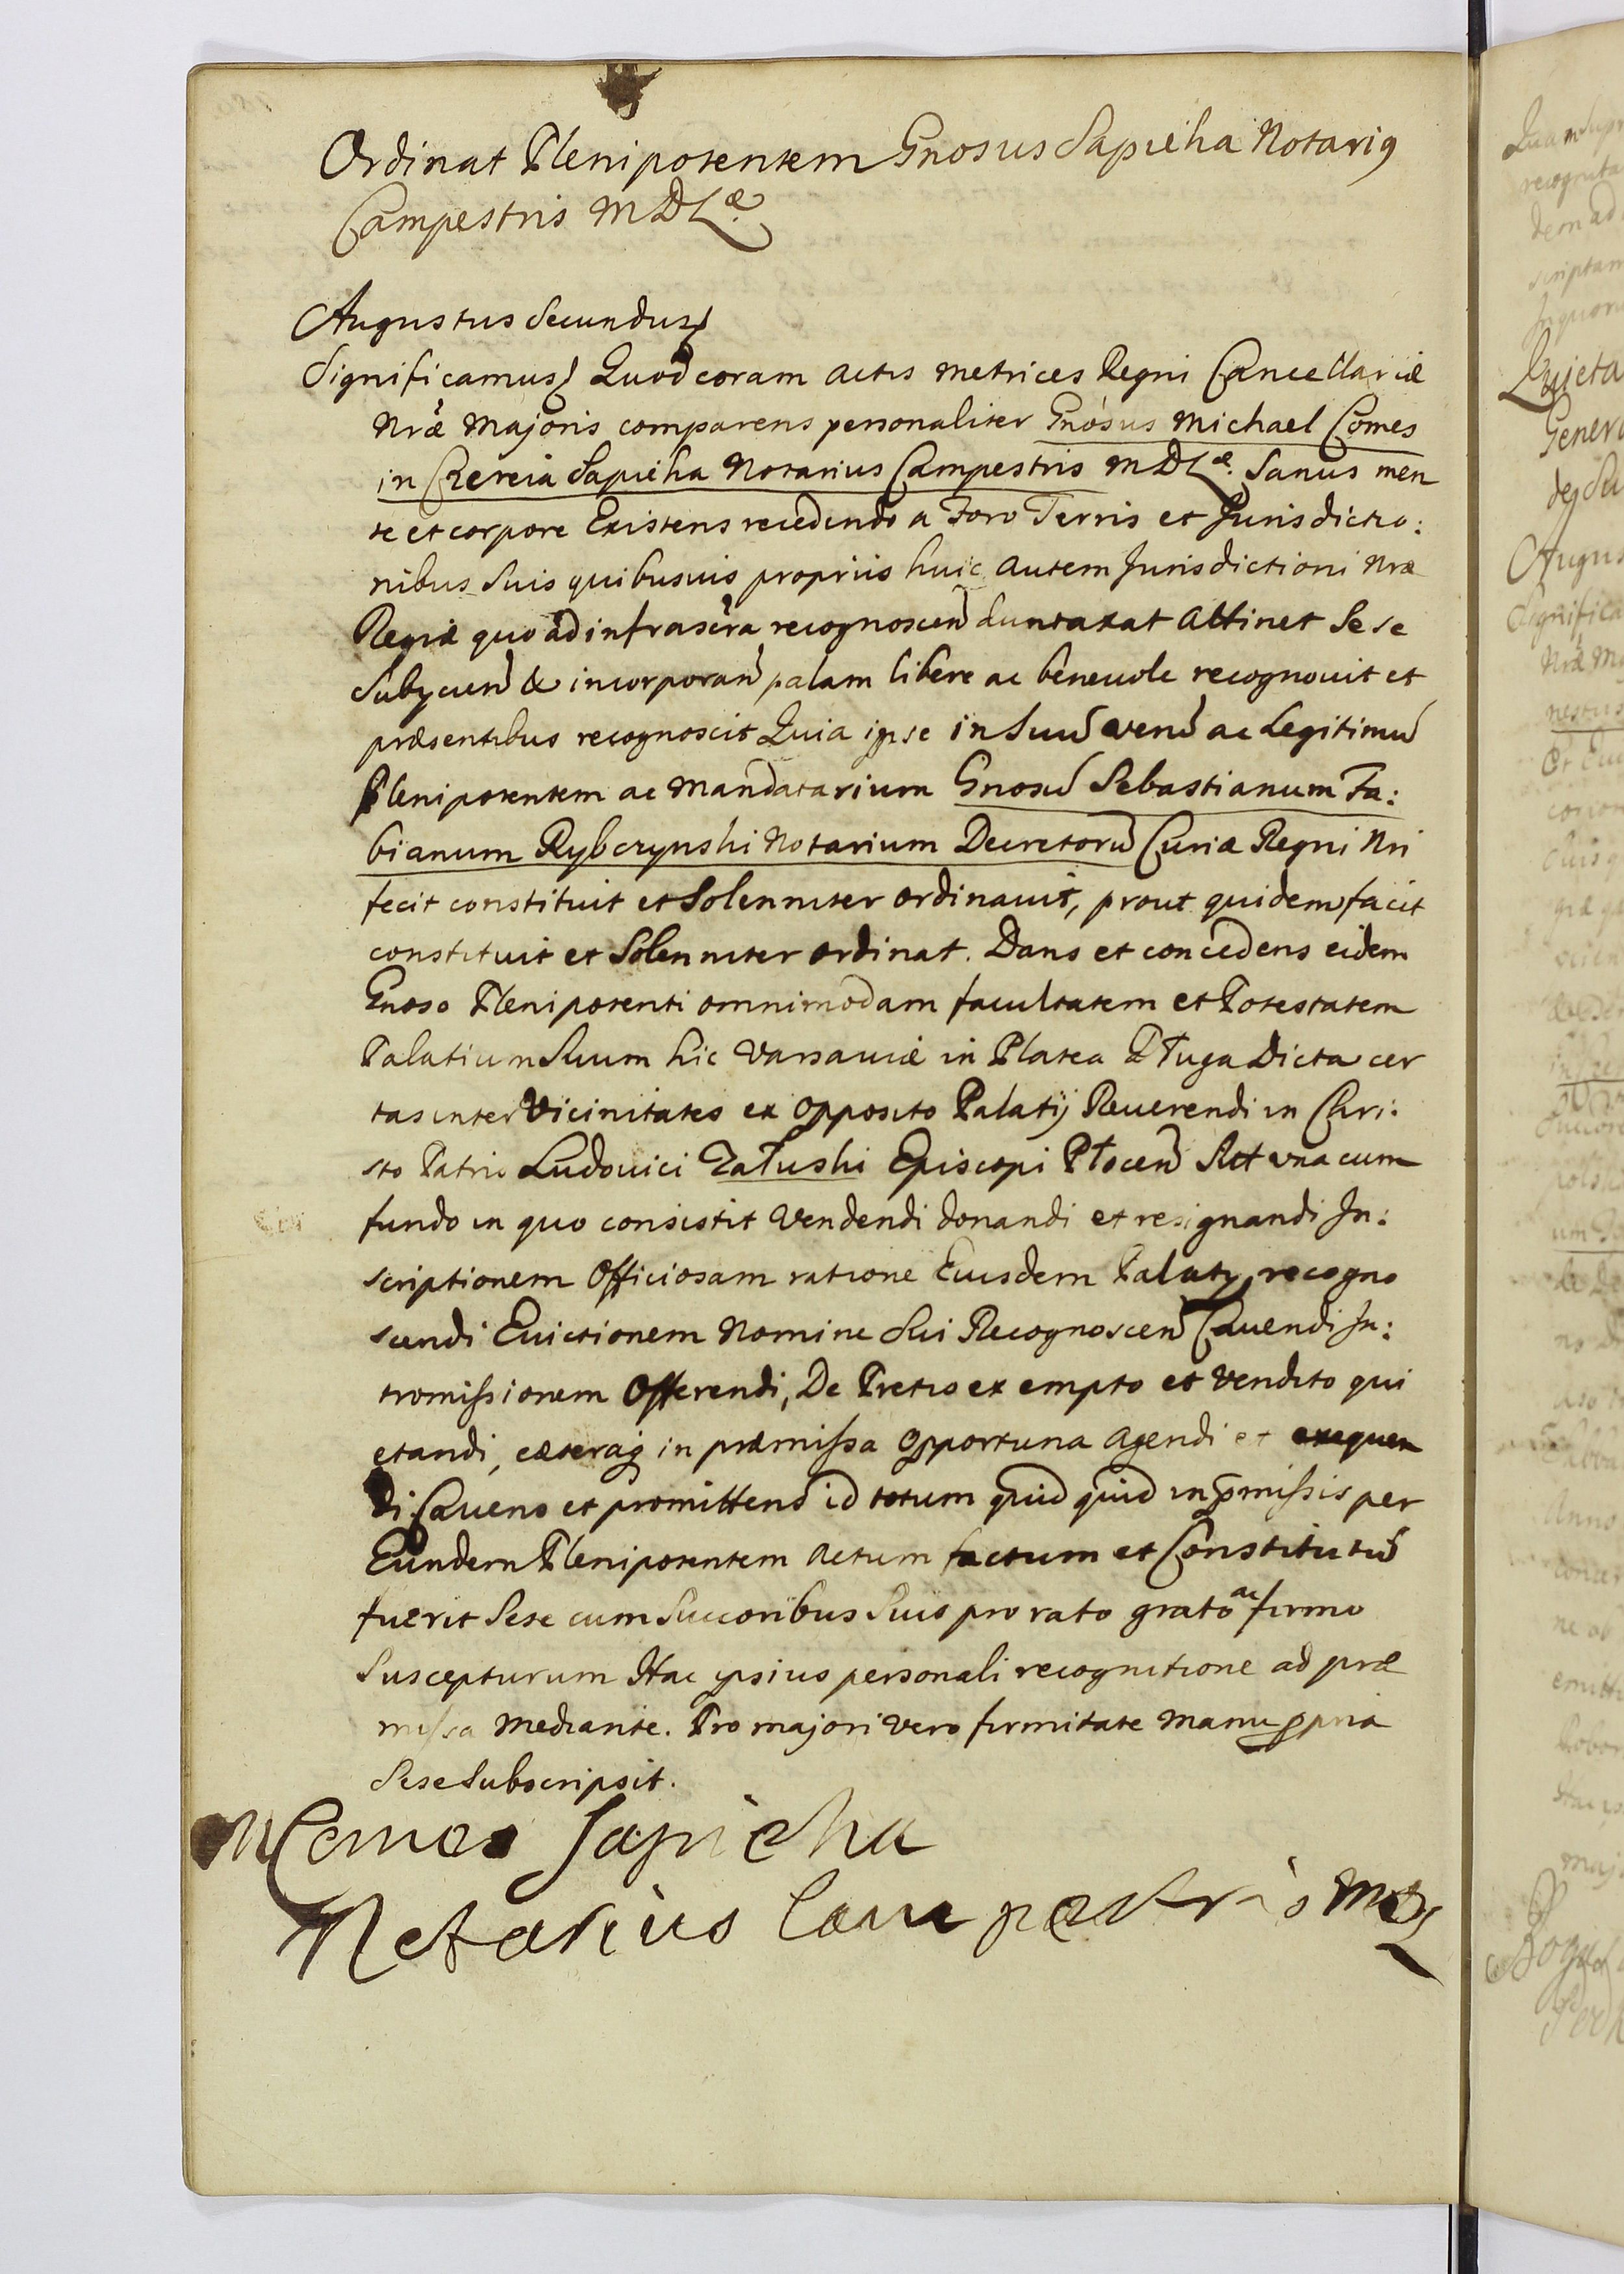 Ordinat Plenipotentem Gnosus Sapieha Notariꝰ
Campestris MDLæ
Augustus Secundus
Significamus Quod coram actis metrices Regni Cancellariæ
Nræ Majoris comparens personaliter Gnosus Michael Comes
in Czereia Sapieha Notarius Campestris MDLæ. Sanus men
te et corpore Existens recedendo a Foro Terris et Jurisdictio:
nibus Suis quibusuis propriis huic autem Jurisdictioni Nræ
Regiæ quo ad infrascra recognoscen̄ duntaxat attinet Se se
Subycien̄ & incorporan̄ palam libere ac beneuole recognouit et
præsentibus recognoscit Quia ipse in Suū verū ac Legitimū
Plenipotentem ac Mandatarium Gnosū Sebastianum Fa:
bianum Rybczynski Notarium Decretorū Curiæ Regni Nri
fecit constituit et Solenniter ordinauit, prout quidem facit
constituit et Solenniter ordinat. Dans et concedens eidem
Gnoso Plenipotenti omnimodam facultatem et Potestatem
Palatium Suum hic Varsauiæ in Platea Długa Dicta cer
tas inter Vicinitates ex opposito Palatij Reuerendi in Chri:
sto Patris Ludouici Załuski Episcopi Płocen̄ Sitt una cum
fundo in quo consistit Vendendi donandi et resignandi In:
scriptionem Officiosam ratione Eiusdem Palaty recogno
scendi Euictionem Nomine Sui Recognoscen̄ Cauendi In:
tromissionem Offerendi, De Pretio ex empto et vendito qui
etandi, cæteraq in præmissa opportuna agendi et exequen
di Cauens et promittens id totum quid quid in p̄missis per
Eundem Plenipotentem actum factum et Constitutū
fuerit Sese cum Succoribus Suis pro rato grato ac firmo
Suscepturum Hac ipsius personali recognitione ad præ
missa mediante. Pro majori vero firmitate manu ppria
Sese Subscripsit.
M Comes Sapieha
Notarius Campestris MDL